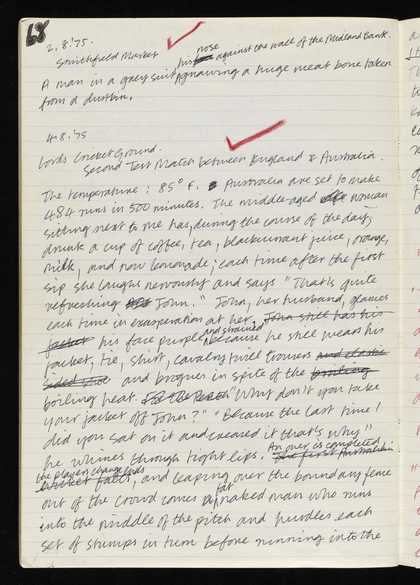 68
2.8.'75.
Smithfield Market
his face nose against the wall of the Midland Bank.
A man in a grey suit, gnawing a huge meat bone taken
from a dustbin.
4.8.'75
Lords Cricket Ground.
Second Test Match between England & Australia.
The temperature: 85° F. Australia are set to make
484 runs in 500 minutes. The middle-aged woman
sitting next to me has, during the course of the day,
drunk a cup of coffee, tea, blackcurrant juice, orange,
milk, and now lemonade; each time after the first
sip she laughs nervously and says "That's quite
refreshing John." John, her husband, glances
each time in exasperation at her. John still has his
jacket his face purple and strained because he still wears his
jacket, tie, shirt, cavalry twill trousers and elastic
sided and brogues in spite of the boiling
boiling heat. "Why don't you take
your jacket off John?" "Because the last time I
did you sat on it and creased it that's why"
he whines through tight lips. An over is completed
the first Australian
the players change ends
wicket falls, and leaping over the boundary fence
out of the crowd comes a fat naked man who runs
into the middle of the pitch and hurdles each
set of stumps in turn before running into the